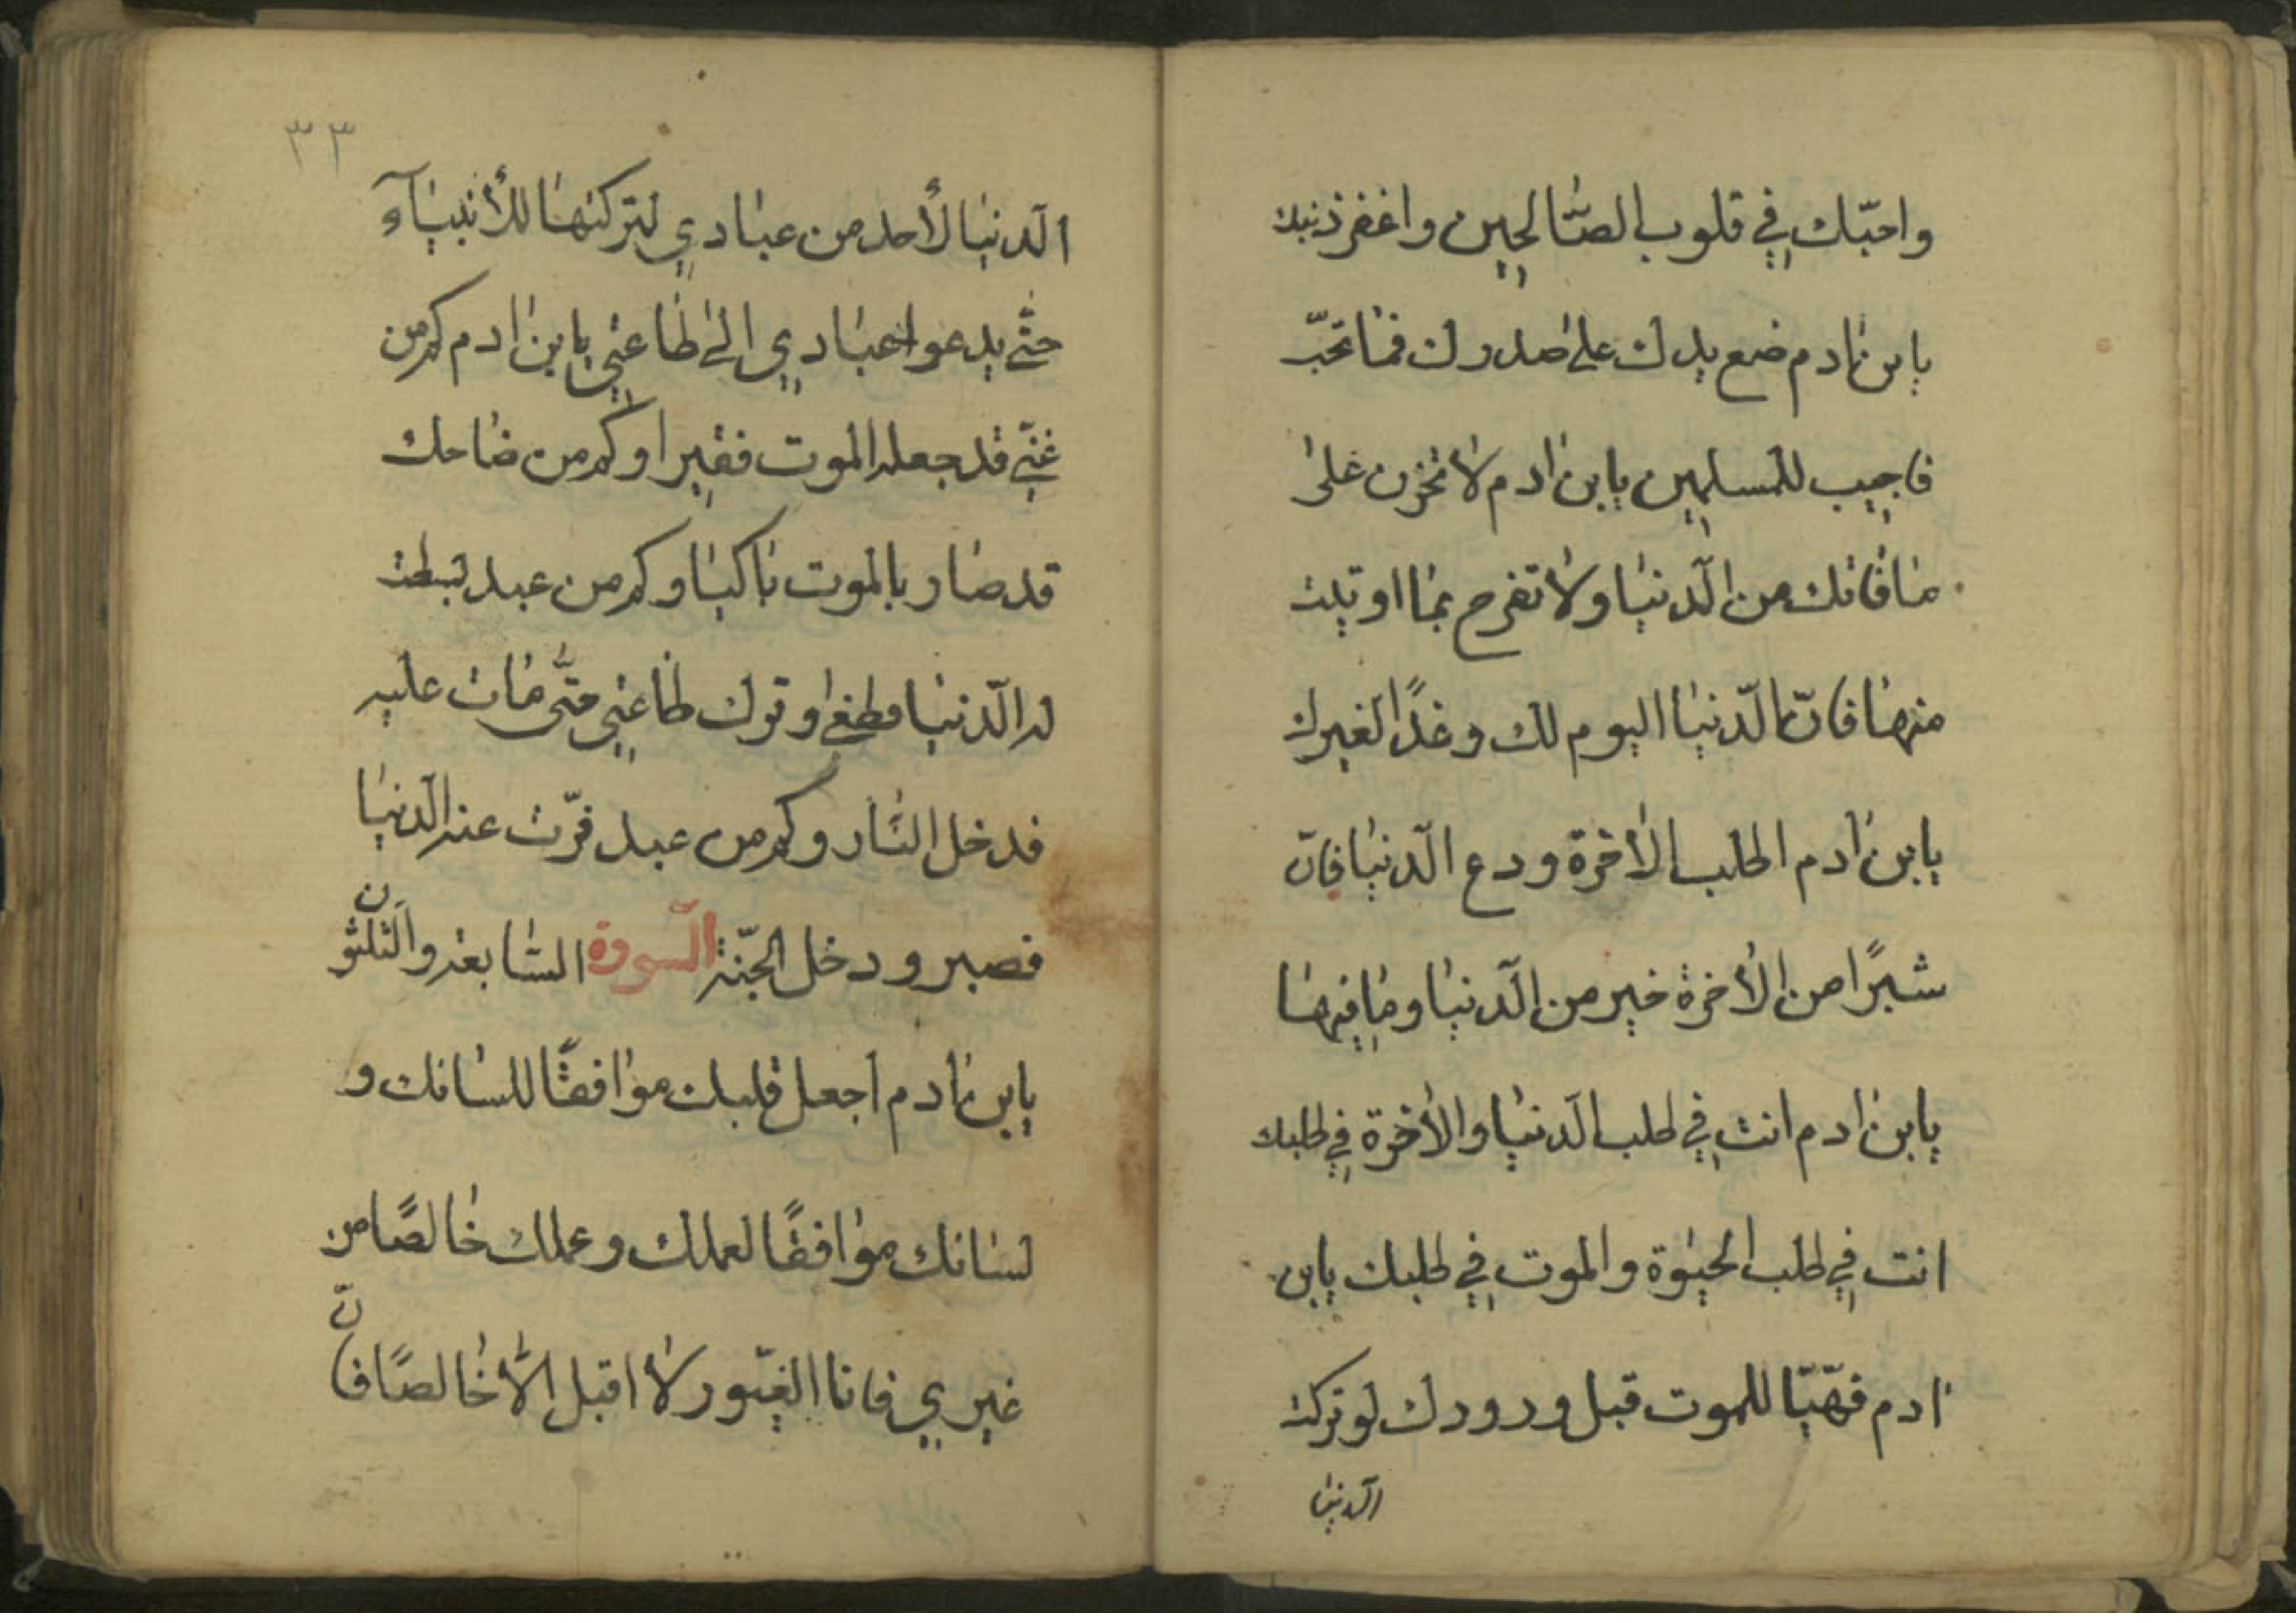 واحبّك في قلوب الصّالحين واغفر ذنبك
يابن ادم ضع يدك على صدرك فما تحبّ
فاجيب للمسلمين يابن ادم لا تحزن على
ما فاتك من الدّنيا ولا تفرح بما اوتيت
منها فانّ الدّنيا اليوم لك وغدًا لغيرك
يابن ادم اطلب الأخرة ودع الدّنيا فانّ
شبرًا من الأخرة خير من الدّنيا وما فيها
يابن ادم انت في طلب الدّنيا والأخرة في طلبك
انت في طلب الحيوة والموت في طلبك يابن
ادم فهيّا للموت قبل ورودك لو تركت
الدّنيا
٣٣
الدّنيا لأحد من عبادي لتركتها للأنبيآء
حتّى يدعوا عبادي الى طاعتي يابن ادم كم من
غنيّ قد جعله الموت فقيرا وكم من ضاحك
قد صار بالموت باكيا وكم من عبد بسطت
له الدّنيا فطغى وترك طاعتي حتّى مات عليه
فدخل النّار وكم من عبد قرّت عنه الدّنيا
فصبر ودخل الجنّة السّورة السّابعة والثلثون
يابن ادم اجعل قلبك موافقًا للسانك و
لسانك موافقًا لعملك وعملك خالصًا من
غيري فانا الغيّور لا اقبل الّا خالصًا فانّ